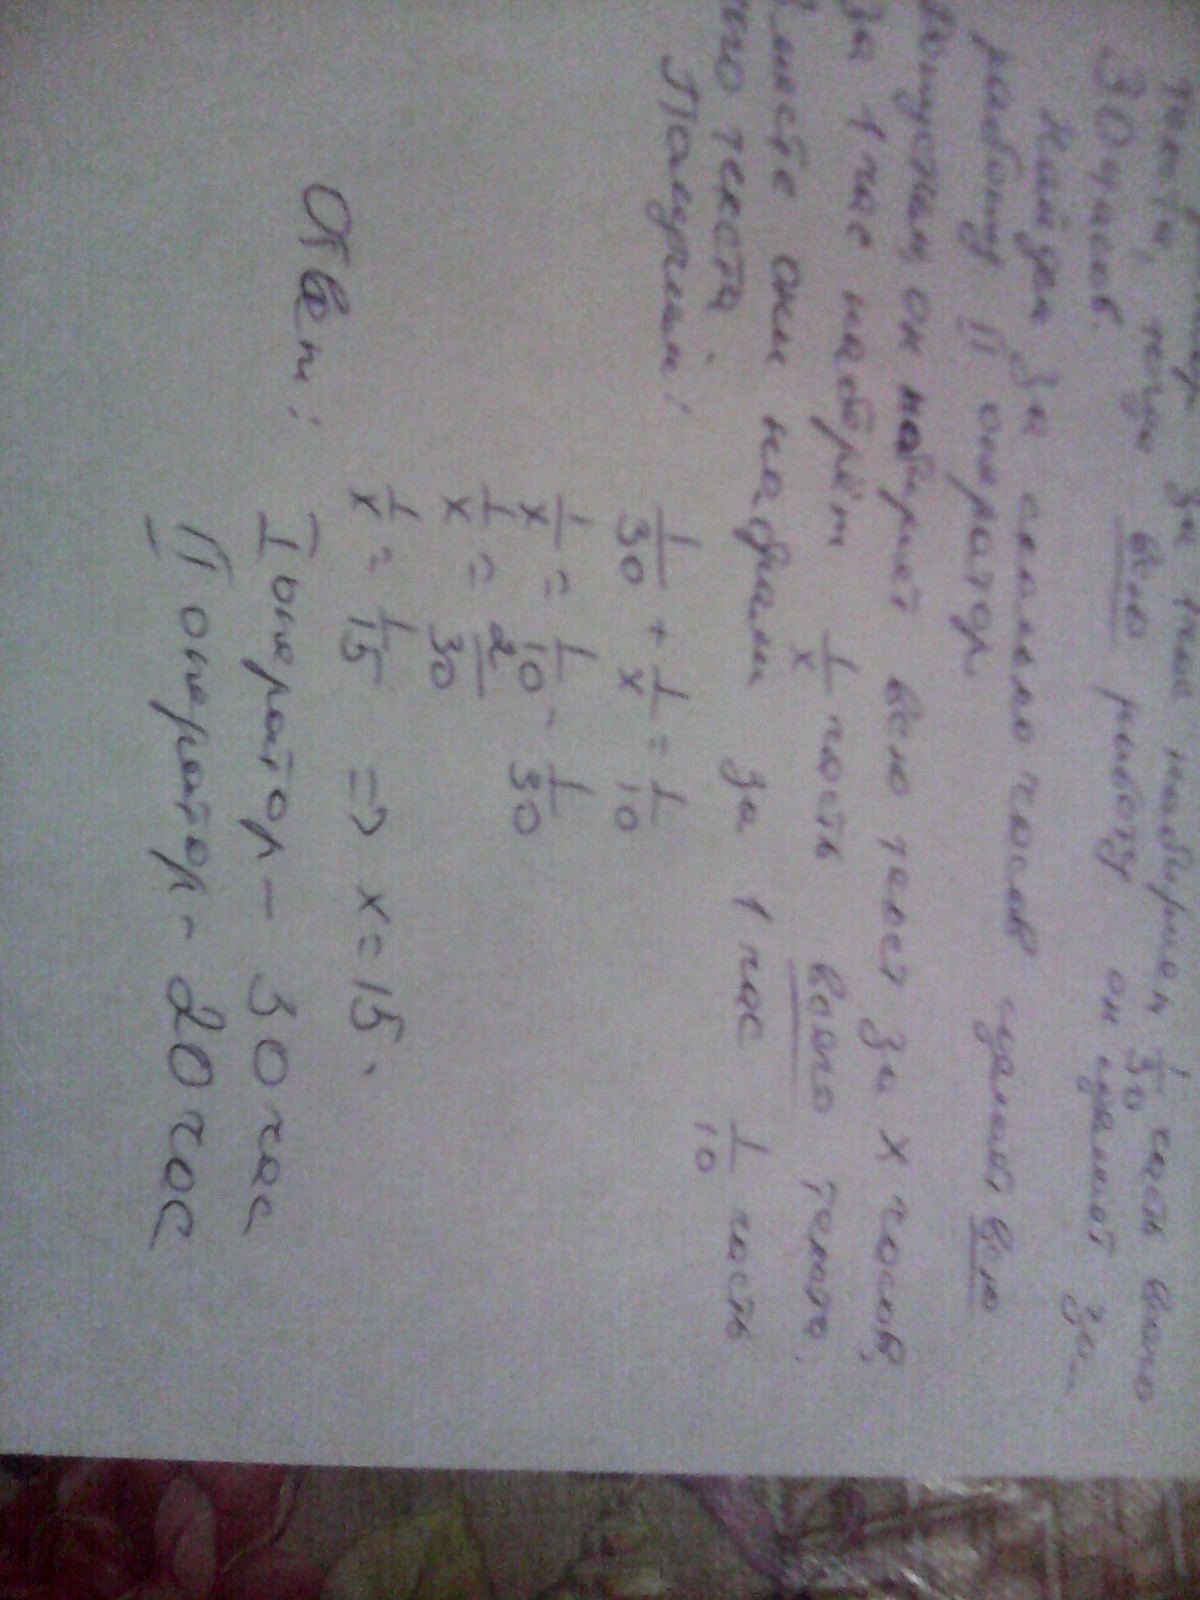 текста, тогда всю работу он сделает за
30 часов.
Найдём за сколько часов сделает всю
работу II оператор.
Допустим, он наберёт весю текст за x часов,
За 1 час наберёт 1/x часть всего текста.
Вместе они набрали за 1 час 1/10 часть
ного текста
Получим:
1/30 + 1/x = 1/10
1/x = 1/10 - 1/30
1/x = 2/30
1/x = 1/15 => x = 15.
Ответ: I оператор - 30 час
II оператор - 20 час